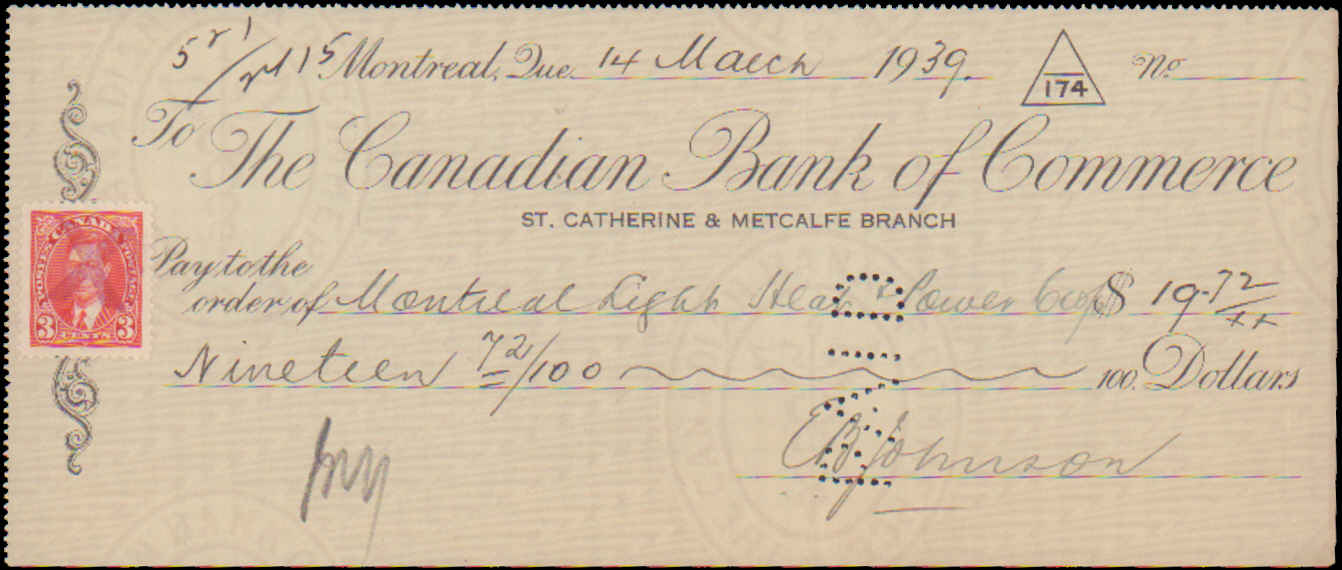 Montreal, Que. 14 March 1939.
174
No.
To The Canadian Bank of Commerce
ST. CATHERINE & METCALFE BRANCH
CANADA
POSTES POSTAGE
3 CENTS 3
Pay to the
order of Montreal Light Heat & Power Corp $ 19.72/xx
Nineteen 72/100 100. Dollars
PAID
E B Johnson